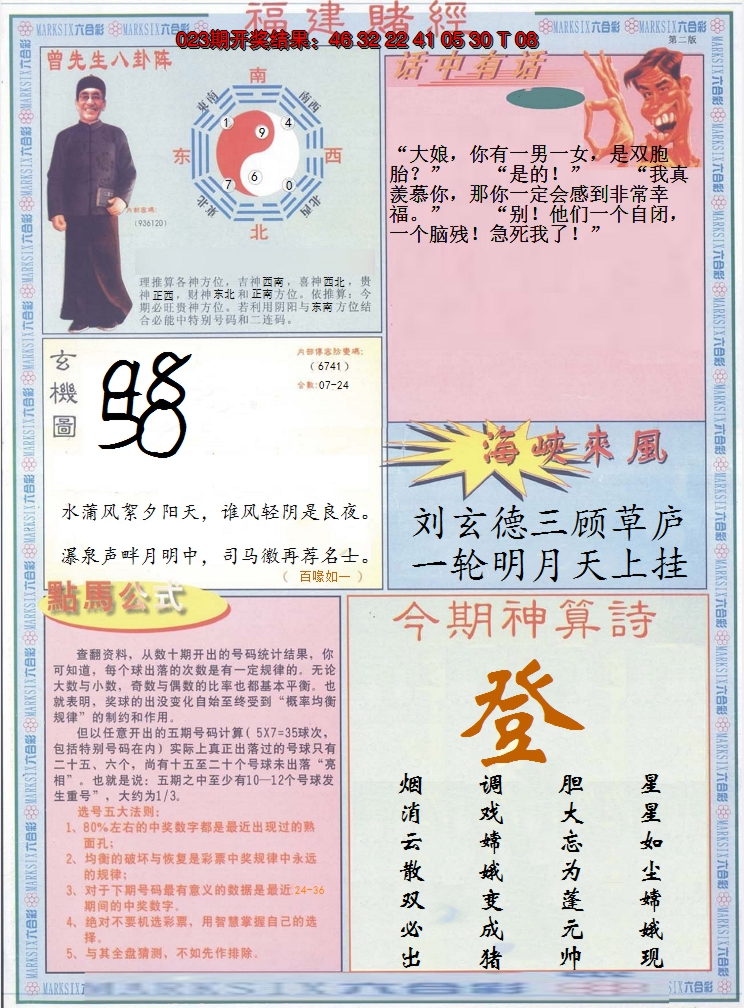 福建賭經
023期开奖结果：46 32 22 41 05 30 T 08
第二版
MARKSIX六合彩
曾先生八卦阵
南
東南
南西
1
9
4
东
西
7
6
0
東北
北西
北
(936120)
理推算各神方位，吉神西南，喜神西北，贵
神正西，财神东北和正南方位。依推算：今
期必旺贵神方位。若利用阴阳与东南方位结
合必能中特别号码和二连码。
话中有话
“大娘，你有一男一女，是双胞
胎？” “是的！” “我真
羡慕你，那你一定会感到非常幸
福。” “别！他们一个自闭，
一个脑残！急死我了！”
玄機圖
（6741）
合数:07-24
水蒲风絮夕阳天，谁风轻阴是良夜。
瀑泉声畔月明中，司马徽再荐名士。
（ 百喙如一 ）
海峽來風
刘玄德三顾草庐
一轮明月天上挂
點馬公式
查翻资料，从数十期开出的号码统计结果，你
可知道，每个球出落的次数是有一定规律的。无论
大数与小数，奇数与偶数的比率也都基本平衡。也
就表明，奖球的出没变化自始至终受到“概率均衡
规律”的制约和作用。
但以任意开出的五期号码计算( 5X7=35球次，
包括特别号码在内）实际上真正出落过的号球只有
二十五、六个，尚有十五至二十个号球未出落“亮
相”。也就是说：五期之中至少有10—12个号球发
生重号”，大约为1/3。
选号五大法则：
1、80%左右的中奖数字都是最近出现过的熟
面孔；
2、均衡的破坏与恢复是彩票中奖规律中永远
的规律；
3、对于下期号码最有意义的数据是最近24-36
期间的中奖数字。
4、绝对不要机选彩票，用智慧掌握自己的选
择。
5、与其全盘猜测，不如先作排除。
今期神算詩
登
烟消云散双必出
调戏嫦娥变成猪
胆大忘为蓬元帅
星星如尘嫦娥现